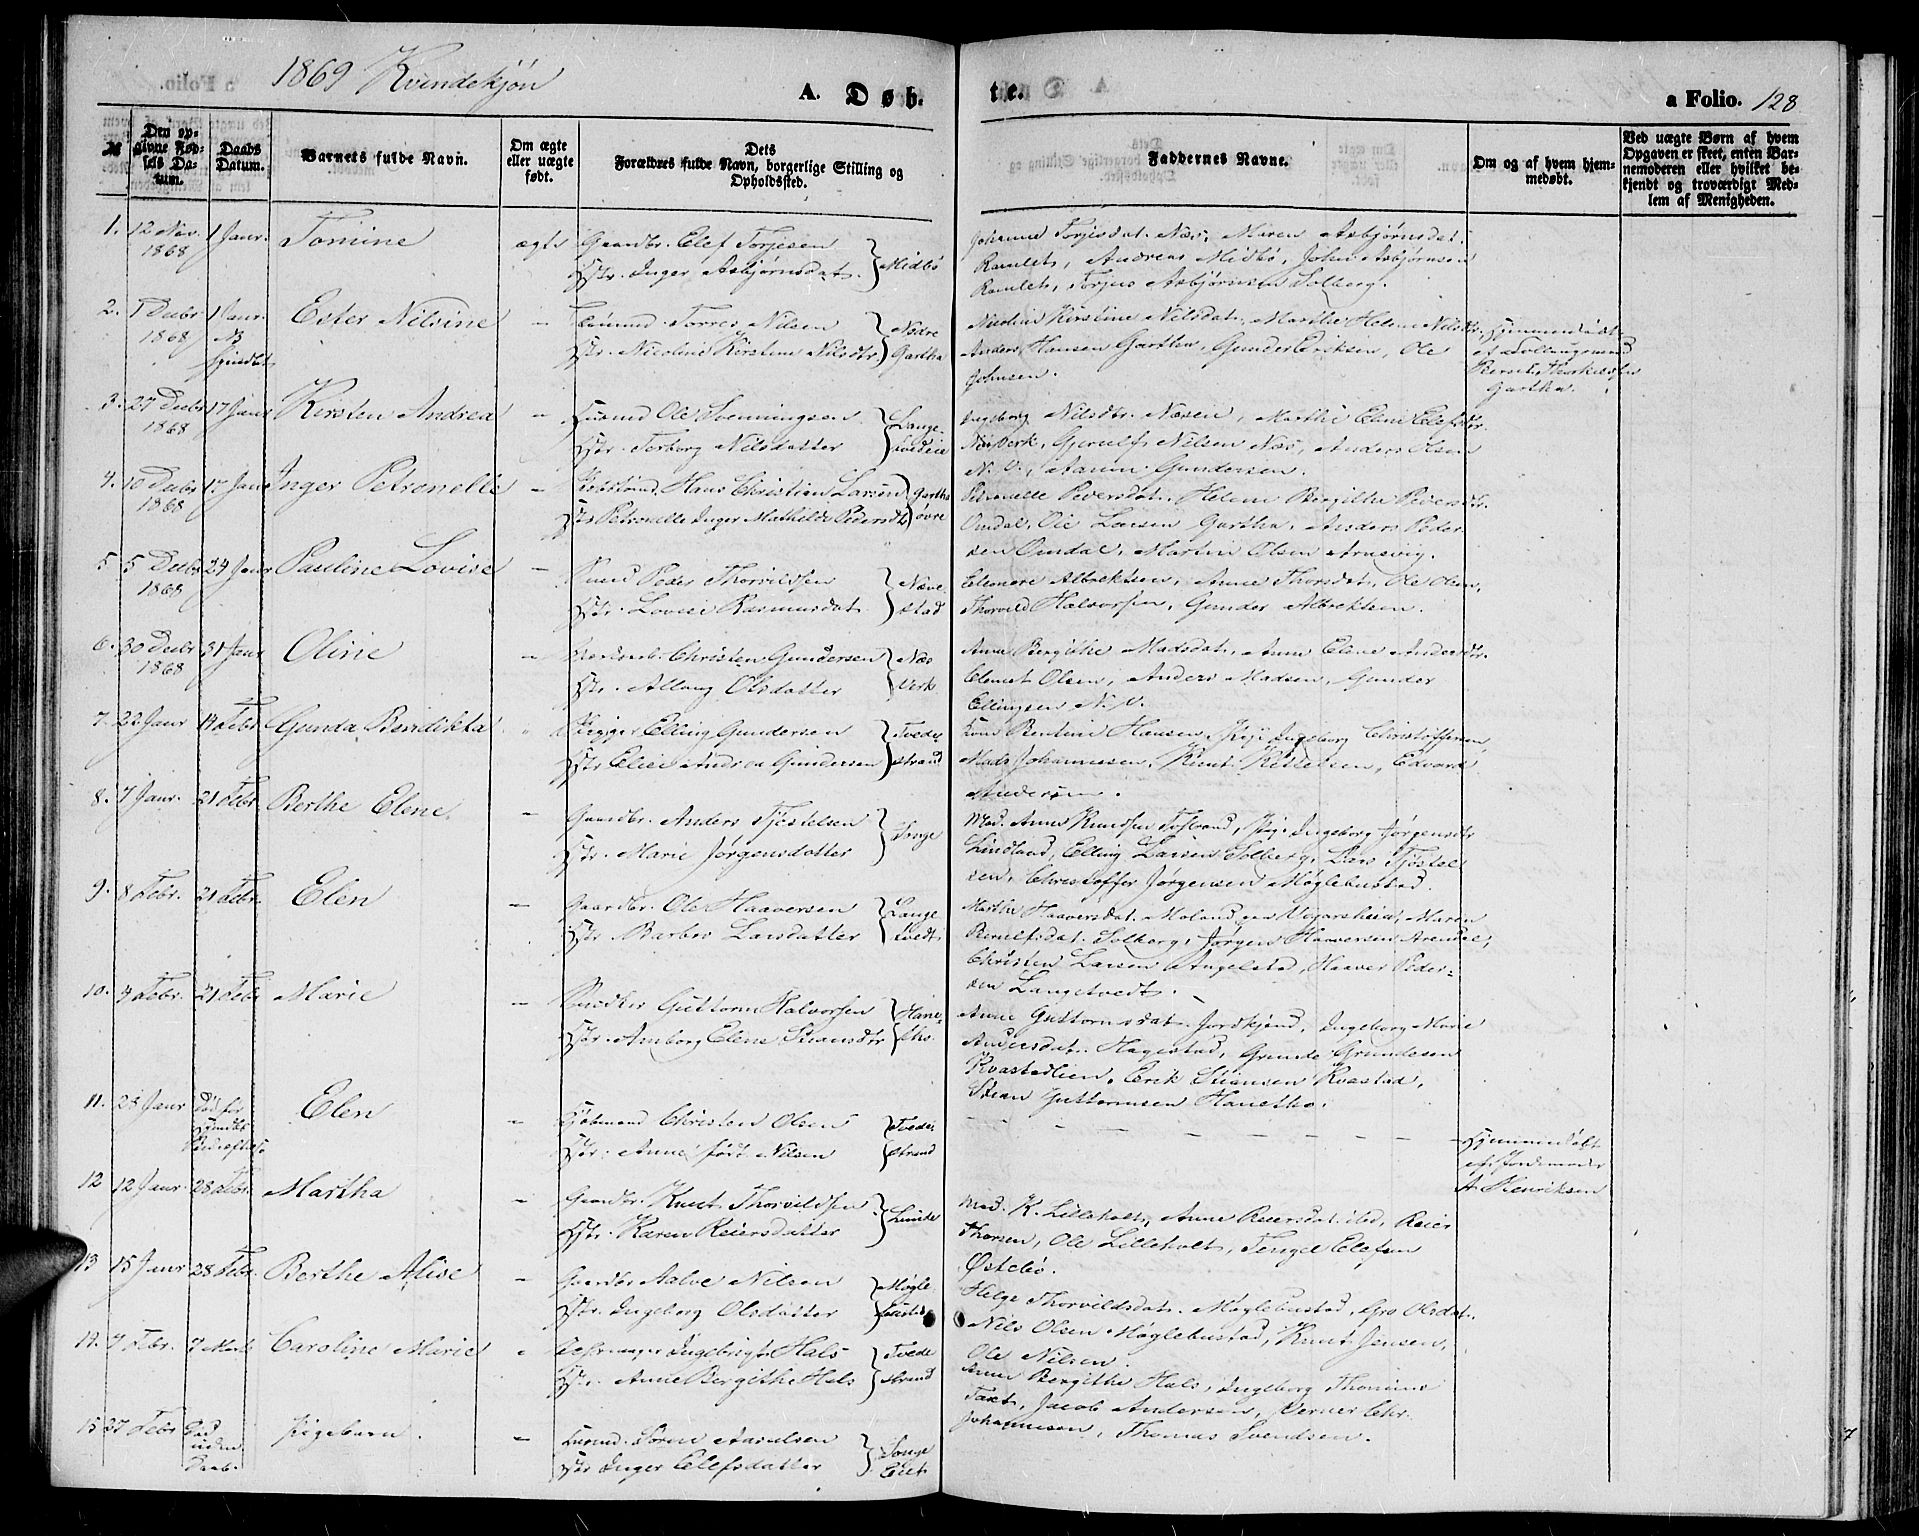 1869 Kvindekjøn
A. Døb.
te.
a Folio. 128
№
Den opgivne Fødsels Datum.
Daabs Datum.
Barnets fulde Navn.
Om ægte eller uægte født.
Dets Forældres fulde Navn, borgerlige Stilling og Opholdssted.
Faddernes Navne.
Om og af hvem hjemmedøbt.
Ved uægte Børn af hvem Opgaven er skeet, enten Barnemoderen eller hvilket bekjendt og troværdigt Medlem af Menigheden.
1. 12 Nov. 1868 1 Janr. Tomine ægte Gaardbr. Elef Torjesen
Hstr. Inger Asbjørnsdat. Midbö
Johanne Torjesdat. Næs, Maren Asbjørnsdat.
Ramlet, Andreas Midbö, John Asbjørnsen
Ramlet, Torjus Asbjørnsen Solberg.
2. 1 Decbr 1868 1 Janr. Ester Nilsine - Torres Nilsen
Hstr. Nicoline Kirstine Nilsdtr Nedre Gartha
Nicoline Kirstine Nilsdat., Marthe Helene Nilsdtr.
Anders Hansen Gartha, Gunder Eriksen, Ole
Johnsen.
Hjemmedøbt
Gartha.
3. 27 Decbr 1868 17 Janr Kirsten Andrea - Husmd Ole Svenningsen
Hstr. Torborg Nilsdatter Lange-
Ingeborg Nilsdtr. Næsen, Marthe Elene Elefsdtr.
Næs Verk, Gjerulf Nilsen Næs, Anders Olsen
N. V., Aanon Gundersen.
4. 10 Decbr 1868 17 Janr Inger Petronelle - Hans Christian Larsen
Hstr Petronelle Inger Mathilde Pedersdtr Gartha øvre
Petronelle Pedersdat. Helene Bergithe Pedersdtr.
Omdal, Ole Larsen Gartha, Anders Peder-
sen Omdal, Martin Olsen Arnevig.
5 5 Decbr 1868 24 Janr Pauline Lovise - Peder Thorvildsen
Hstr. Lovise Rasmusdat. Næve-stad
Eleonore Albrektsen, Anne Thorsdat., Ole Olsen,
Thorvild Halvorsen, Gunder Albrektsen.
6. 30 Decbr 1868 31 Janr Oline - Christen Gundersen
Hstr. Allaug Olsdatter Næs Verk
Anne Bergithe Madsdat., Anne Elene Andersdtr.
Clemet Olsen, Anders Madsen, Gunder
Ellingsen N. V.
7. 22 Janr 14 Febr. Gunda Bendikta " Elling Gundersen
Hstr Elise Andrea Gundersen Tvede-strand
Kone Bentine Hansen, Pige Ingeborg Christoffersen,
Mads Johannessen, Knut Kittelsen, Edvard
Andersen.
8. 7 Janr. 21 Febr. Berthe Elene - Gaardbr. Anders Tjöstelsen
Hstr. Marie Jørgensdatter
Mad. Anne Knudsen, Pige Ingeborg Jørgensdtr
Lindland, Elling Larsen Solberg, Lars Tjöstel-
sen, Christoffer Jørgensen Møglebustad.
9. 8 Febr. 21 Febr. Elen - Gaardbr. Ole Haaversen
Hstr Barbro Larsdatter Lange-tvedt
Marthe Haaversdat. Moland, Vegarsheien, Maren
Solberg, Jørgen Haaversen Arendal,
Christen Larsen Angelstad, Haaver Peder-
sen Langetvedt.
10. 4 Febr. 21 Febr Marie - Guttorm Halvorsen
Hstr. Amborg Elene Stiansdtr Hane-tho.
Anne Guttormsdat. Jordkjend, Ingeborg Marie
Andersdat. Hagestad, Grunde Grundesen
Kvastadlien, Erik Stiansen Kvastad,
Stian Guttormsen Hanetho.
11. 23 Janr Död før Elen " Christen Olsen
Hstr. Anne født Nilsen Tvede-strand
Hjemmedøbt
Af Jordemoder
A. Henriksen
12 12 Janr. 28 Febr. Martha " Gaardbr. Knut Thorvildsen
Hstr. Karen Reiersdatter Lunde
Mad. K. Lilleholt, Anne Reiersdat. ibd, Reier
Thorsen, Ole Lilleholt, Tengel Elefsen
Østebø.
13 15 Janr 28 Febr. Berthe Alise - Gaardbr Aalve Nilsen
Hstr. Ingeborg Olsdatter Møgle
Helge Thorvildsdat. Møglebustad, Gro Olsdat.
Nils Olsen Møglebustad, Knut Jensen,
Ole Nilsen.
14. 7 Febr. 7 Marts Caroline Marie " Ingebrigt Hals
Hstr. Anne Bergithe Hals Tvede strand
Anne Bergithe Hals, Ingeborg Thomine
Taxt, Jacob Andersen, Verner Chr.
Johannessen, Thomas Svendsen.
15 27 Febr Död uden Daab. Pigebarn. - Husmd. Søren Aanilsen
Hstr Inger Elefsdatter Songe